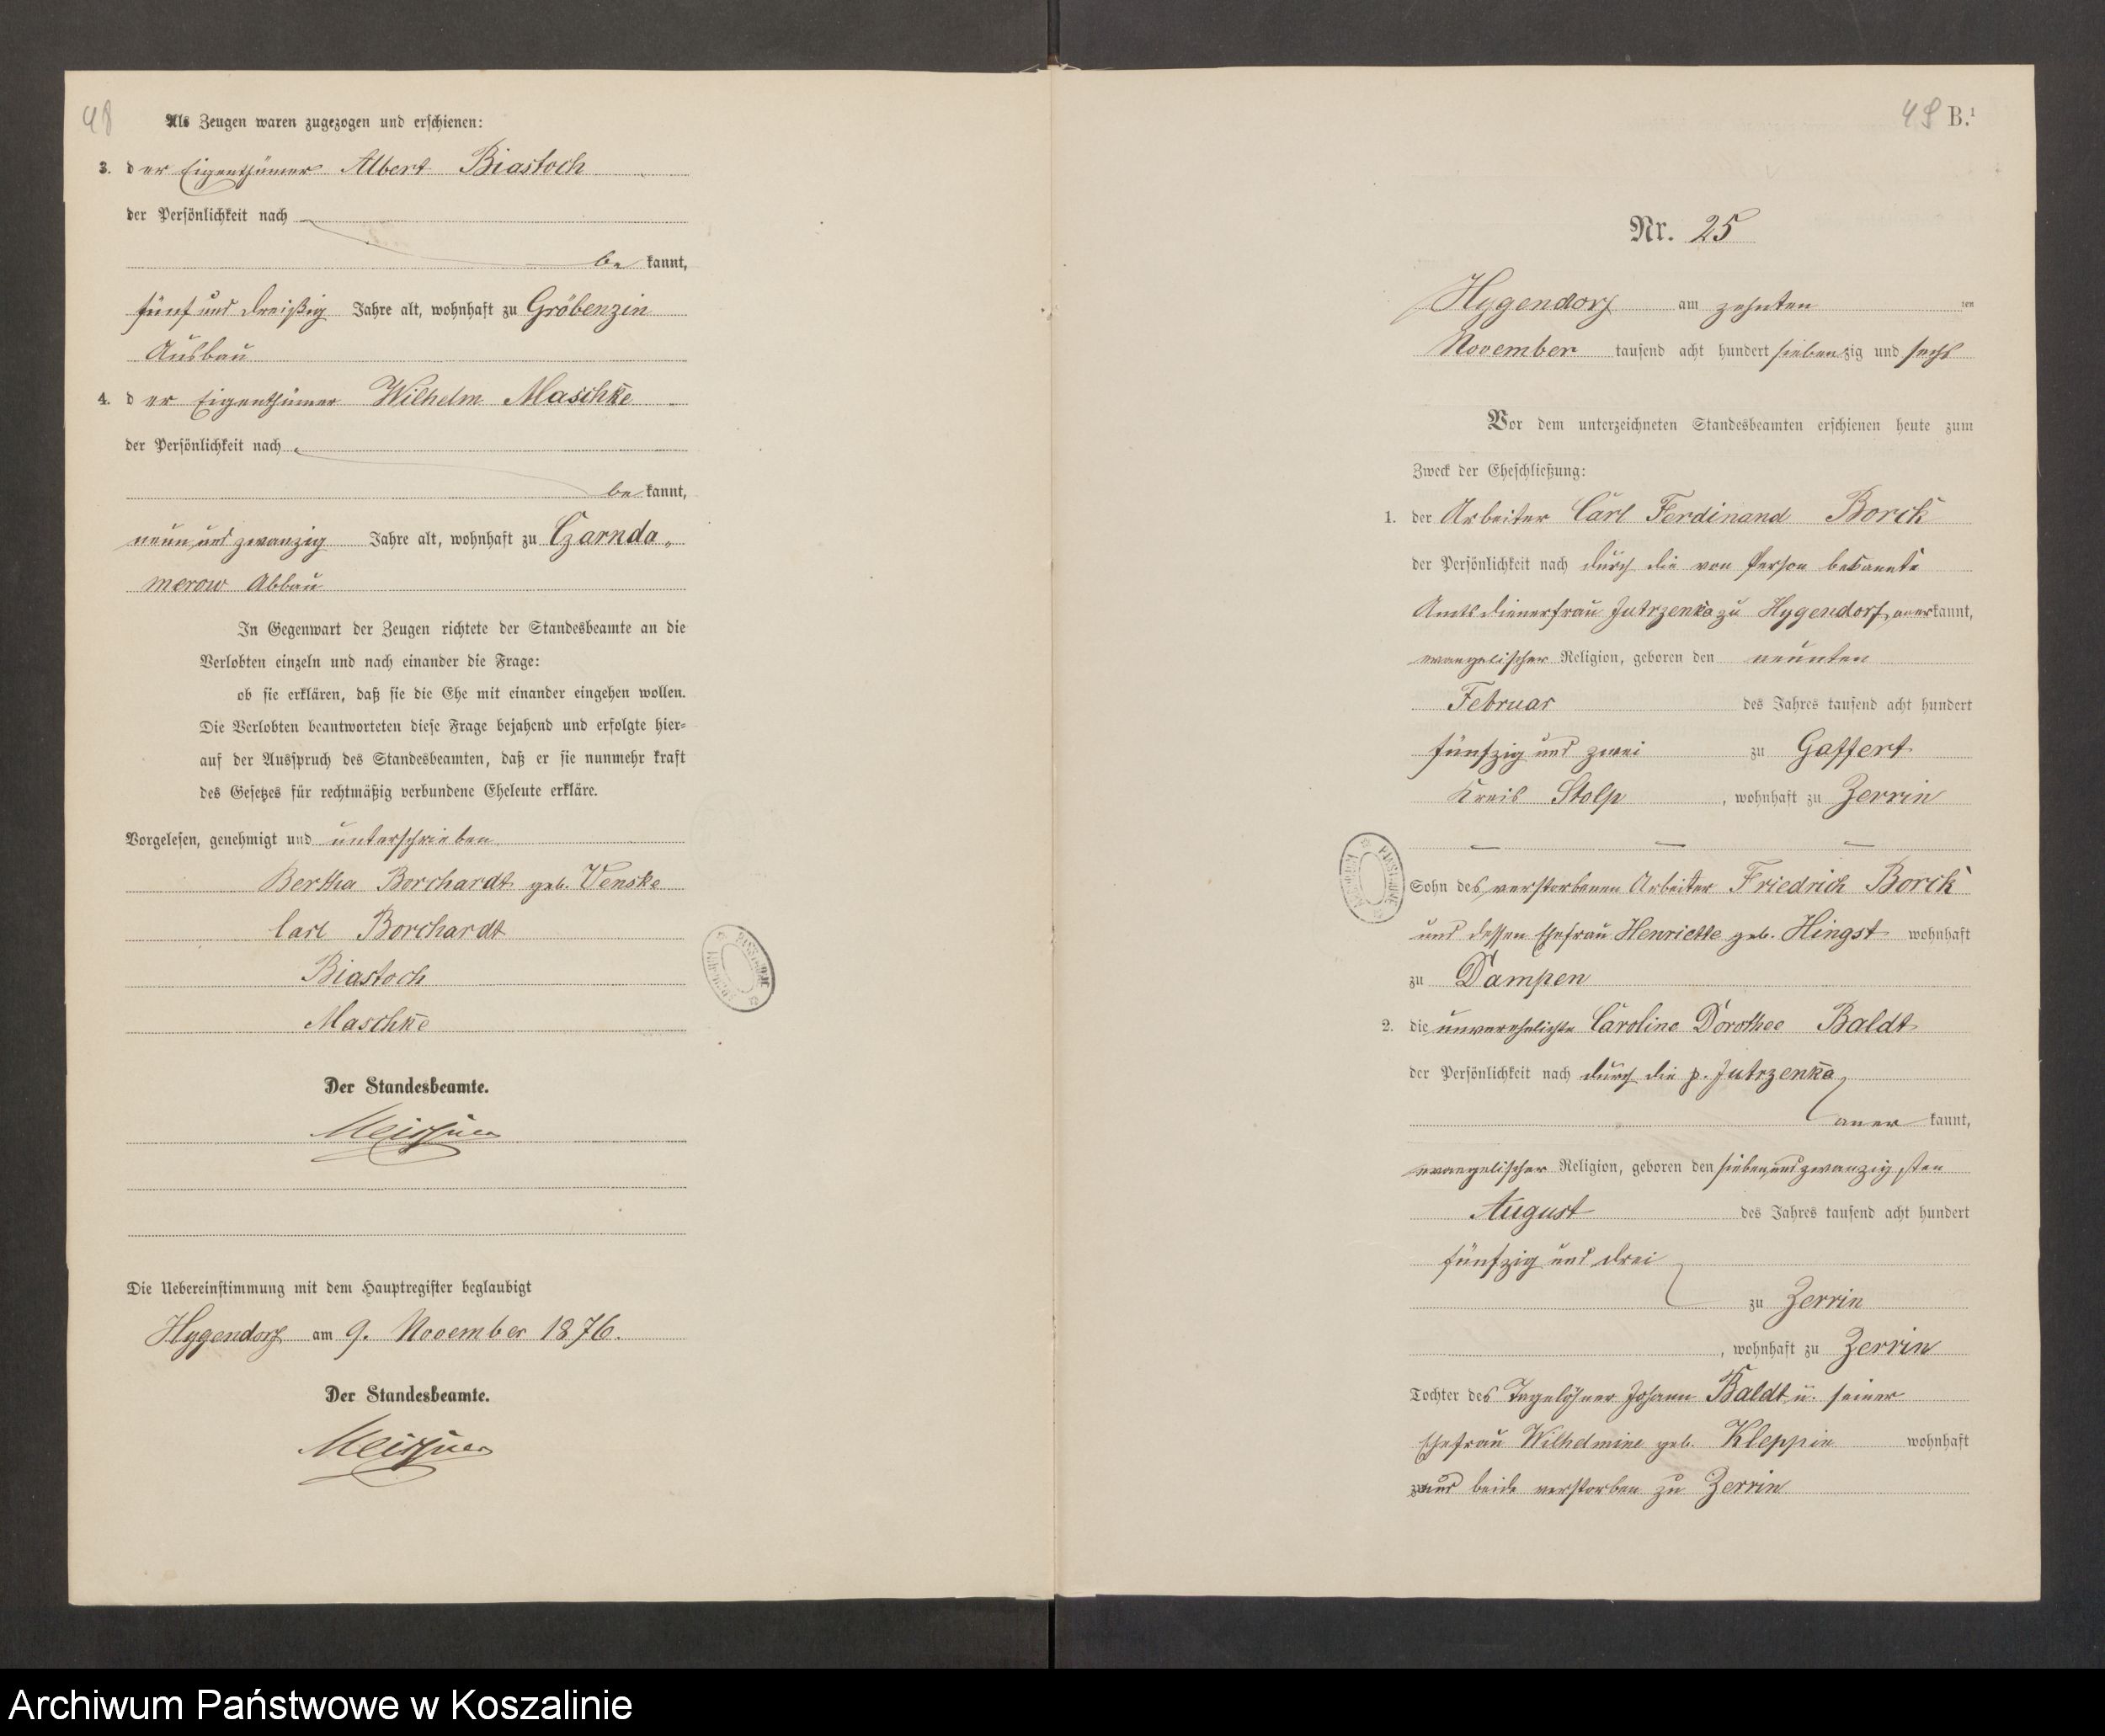 48
Als Zeugen waren zugezogen und erschienen:
3. der Eigenthümer Albert Biastoch
der Persönlichkeit nach
be kannt,
fünf und dreißig Jahre alt, wohnhaft zu Gröbenzin
Ausbau
4. der Eigenthümer Wilhelm Maschke
der Persönlichkeit nach
be kannt,
neun und zwanzig Jahre alt, wohnhaft zu Czarnda„
merow Abbau
In Gegenwart der Zeugen richtete der Standesbeamte an die
Verlobten einzeln und nach einander die Frage:
ob sie erklären, daß sie die Ehe mit einander eingehen wollen.
Die Verlobten beantworteten diese Frage bejahend und erfolgte hier-
auf der Ausspruch des Standesbeamten, daß er sie nunmehr kraft
des Gesetzes für rechtmäßig verbundene Eheleute erkläre.
Vorgelesen, genehmigt und unterschrieben
Bertha Borchardt geb. Venske
Carl Borchardt
Biastoch
Maschke
Der Standesbeamte.
Meissner
Die Uebereinstimmung mit dem Hauptregister beglaubigt
Hygendorf am 9. November 1876.
Der Standesbeamte.
Meissner
49 B.¹
Nr. 25
Hygendorf am zehnten ten
November tausend acht hundert siebenzig und sechs
Vor dem unterzeichneten Standesbeamten erschienen heute zum
Zweck der Eheschließung:
1. der Arbeiter Carl Ferdinand Borck
der Persönlichkeit nach durch die von Person bekannte
Amtsdienerfrau Jutrzenka zu Hygendorf anerkannt,
evangelischer Religion, geboren den neunten
Februar des Jahres tausend acht hundert
fünfzig und zwei zu Gaffert
Kreis Stolp, wohnhaft zu Zerrin
Sohn des verstorbenen Arbeiter Friedrich Borck
und dessen Ehefrau Henriette geb. Hingst wohnhaft
zu Dampen
2. die unverehelichte Caroline Dorothee Baldt
der Persönlichkeit nach durch die p. Jutrzenka
aner kannt,
evangelischer Religion, geboren den sieben und zwanzigsten
August des Jahres tausend acht hundert
fünfzig und drei
zu Zerrin
, wohnhaft zu Zerrin
Tochter des Tagelöhner Johann Baldt u. seiner
Ehefrau Wilhelmine geb. Kleppin wohnhaft
zu und beide verstorben zu Zerrin
Archiwum Państwowe w Koszalinie